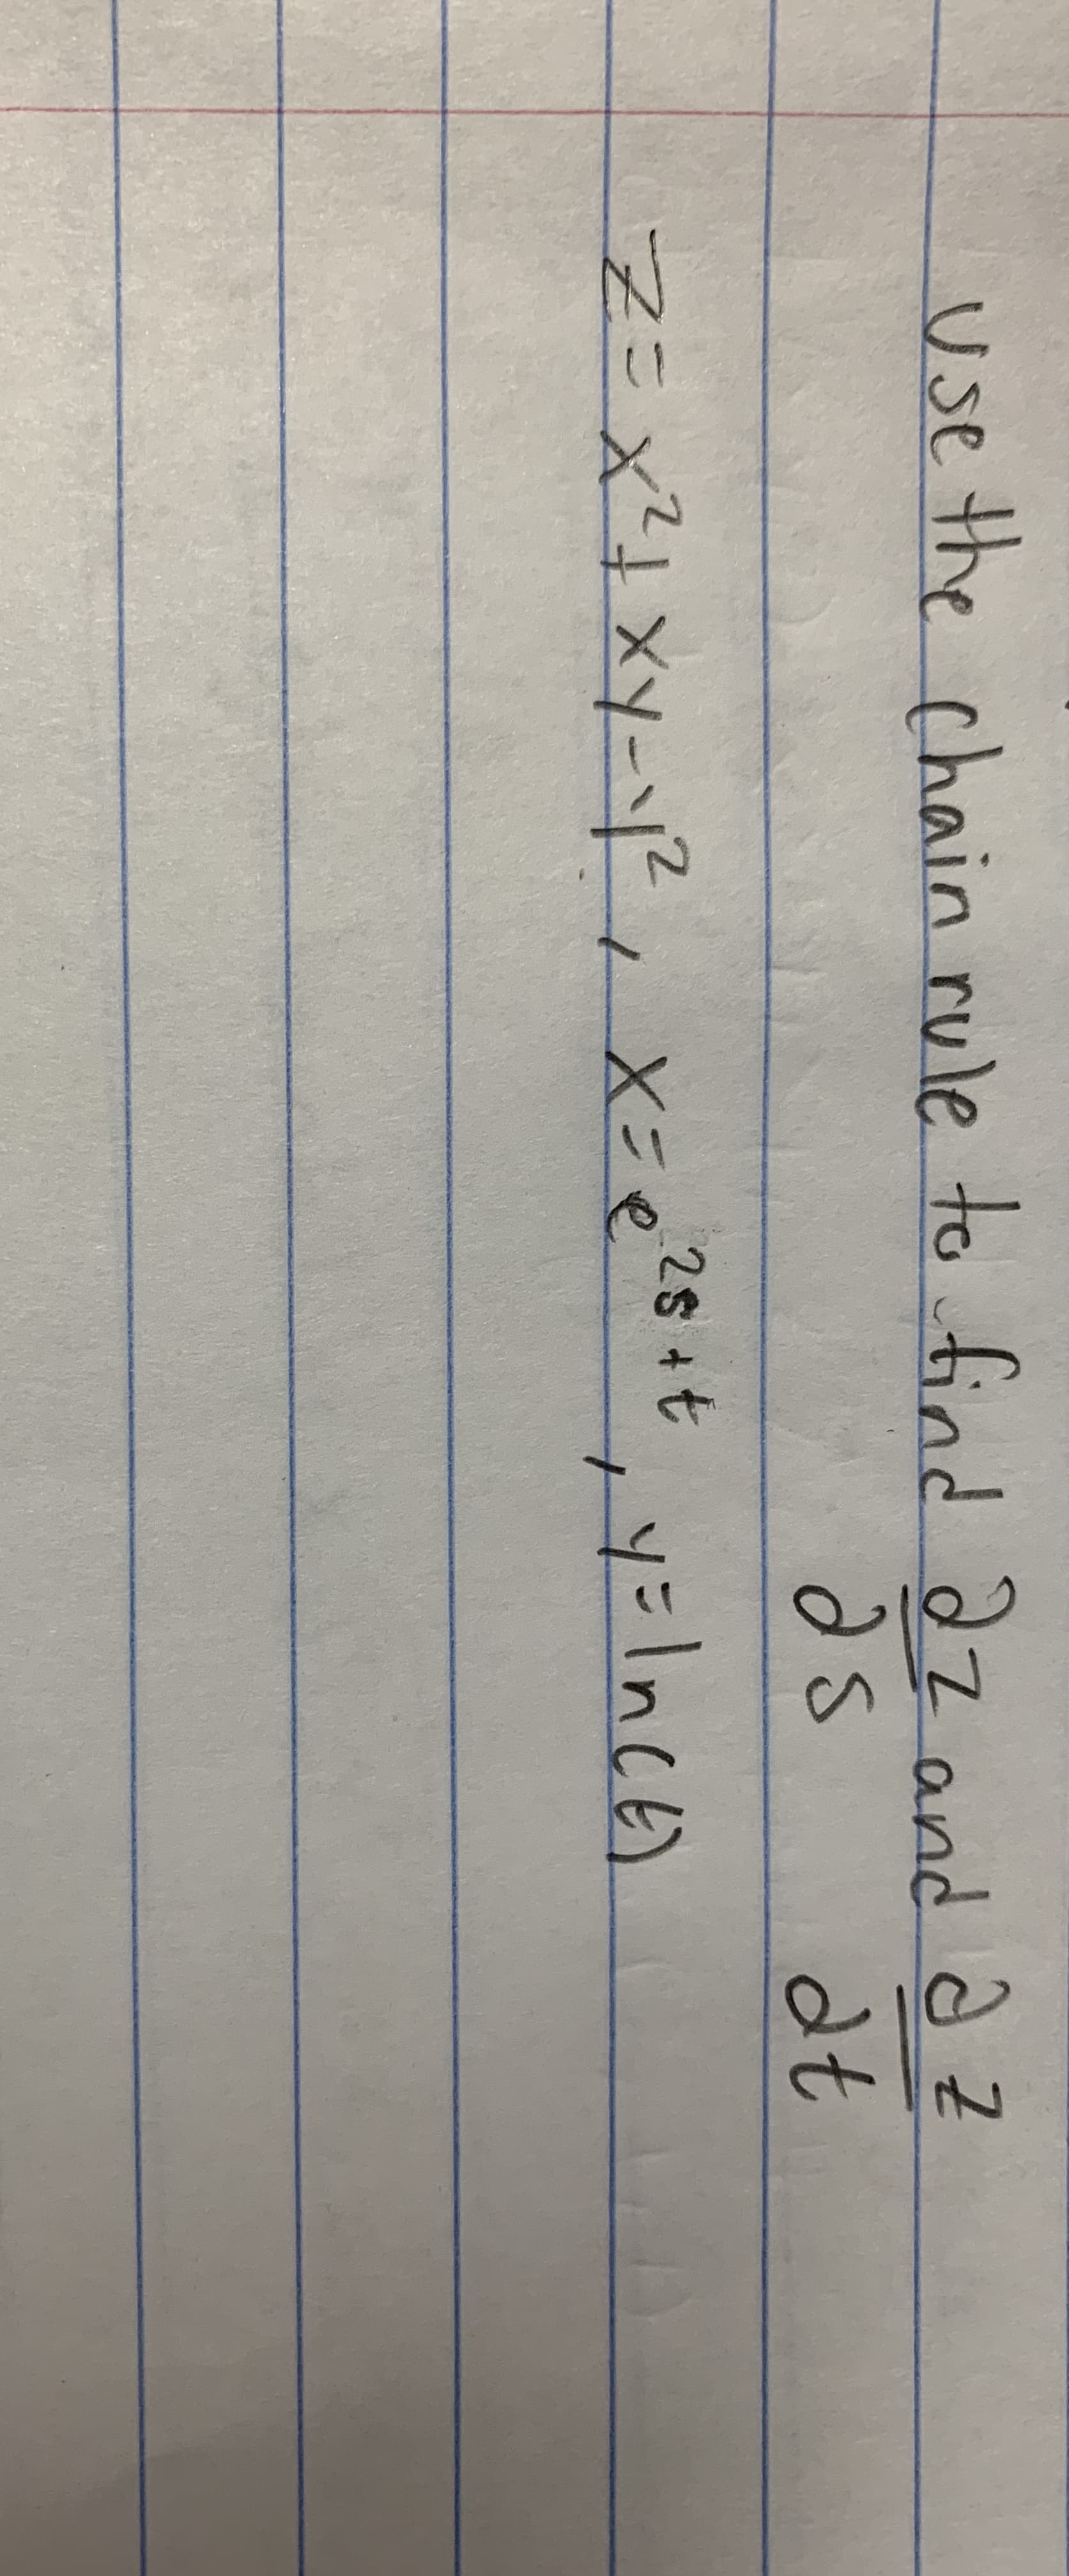 Use the chain rule to find ∂z/∂s and ∂z/∂t
z = x² + xy - y², x = e^(2s+t), y = ln(t)